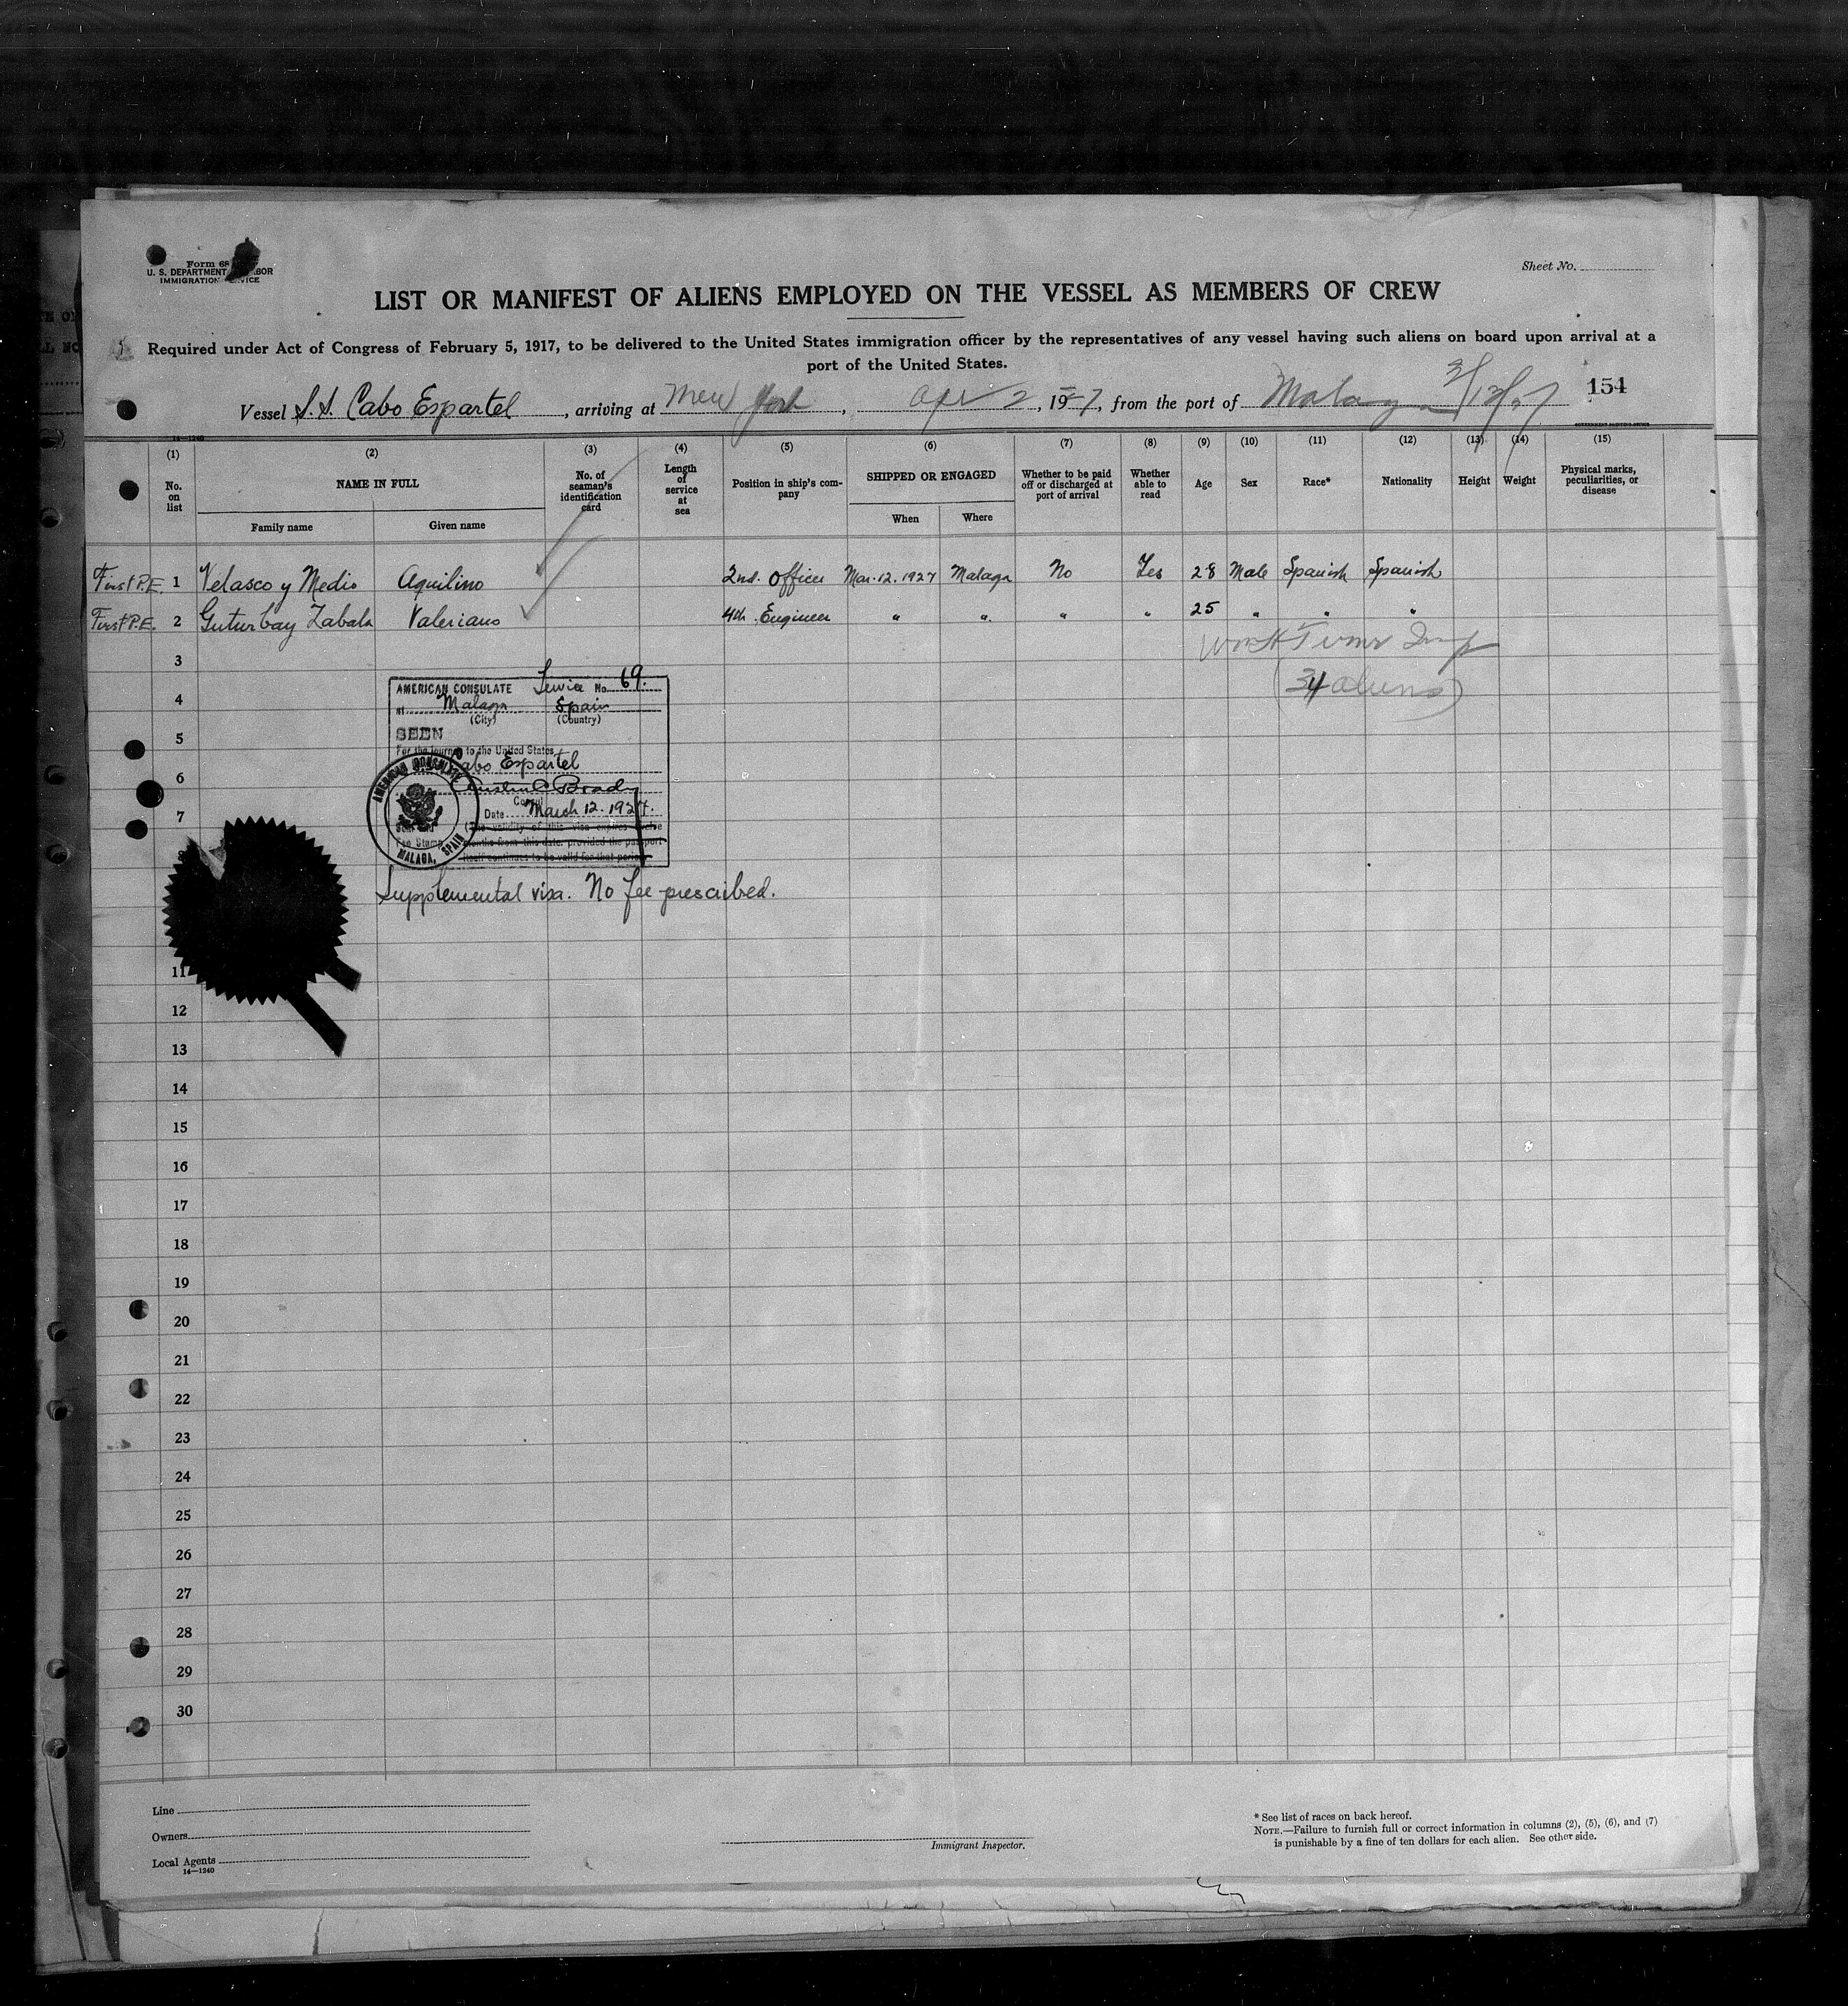 Form 68
U. S. DEPARTMENT
IMMIGRATION
Sheet No.
LIST OR MANIFEST OF ALIENS EMPLOYED ON THE VESSEL AS MEMBERS OF CREW
Required under Act of Congress of February 5, 1917, to be delivered to the United States immigration officer by the representatives of any vessel having such aliens on board upon arrival at a
port of the United States.
Vessel S.S. Cabo Espartel, arriving at New York, Apr 2, 1927, from the port of Malaga 3/12/27 154
14—1240 GOVERNMENT PRINTING OFFICE
(1) (2) (3) (4) (5) (6) (7) (8) (9) (10) (11) (12) (13) (14) (15)
No. on list NAME IN FULL No. of seaman's identification card Length of service at sea Position in ship's company SHIPPED OR ENGAGED Whether to be paid off or discharged at port of arrival Whether able to read Age Sex Race* Nationality Height Weight Physical marks, peculiarities, or disease
Family name Given name When Where
First P.E. 1 Velasco y Medio Aquilino 2nd. Officer Mar. 12. 1927 Malaga No Yes 28 Male Spanish Spanish
First P.E. 2 Guturbay Zabala Valeriano 4th Engineer " " " " 25 " " "
3
(34 aliens)
4
5
6
7
AMERICAN CONSULATE Service No. 69.
at Malaga Spain
(City) (Country)
SEEN
For the journey to the United States
Cabo Espartel
Austin C Brady
Consul
Date March 12. 1927.
(The validity of this visa expires twelve
Fee Stamp months from this date, provided the passport
itself continues to be valid for that period
AMERICAN CONSULATE
MALAGA, SPAIN
Supplemental visa. No fee prescribed.
11
12
13
14
15
16
17
18
19
20
21
22
23
24
25
26
27
28
29
30
Line
Owners
Local Agents
14—1240
Immigrant Inspector.
* See list of races on back hereof.
NOTE.—Failure to furnish full or correct information in columns (2), (5), (6), and (7)
is punishable by a fine of ten dollars for each alien. See other side.